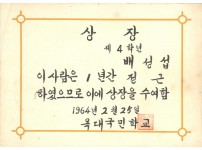 상장
제4학년
배성섭
이 사람은 1년간 정근
하였으므로 이에 상장을 수여함
1964년 2월 25일
옥대국민학교